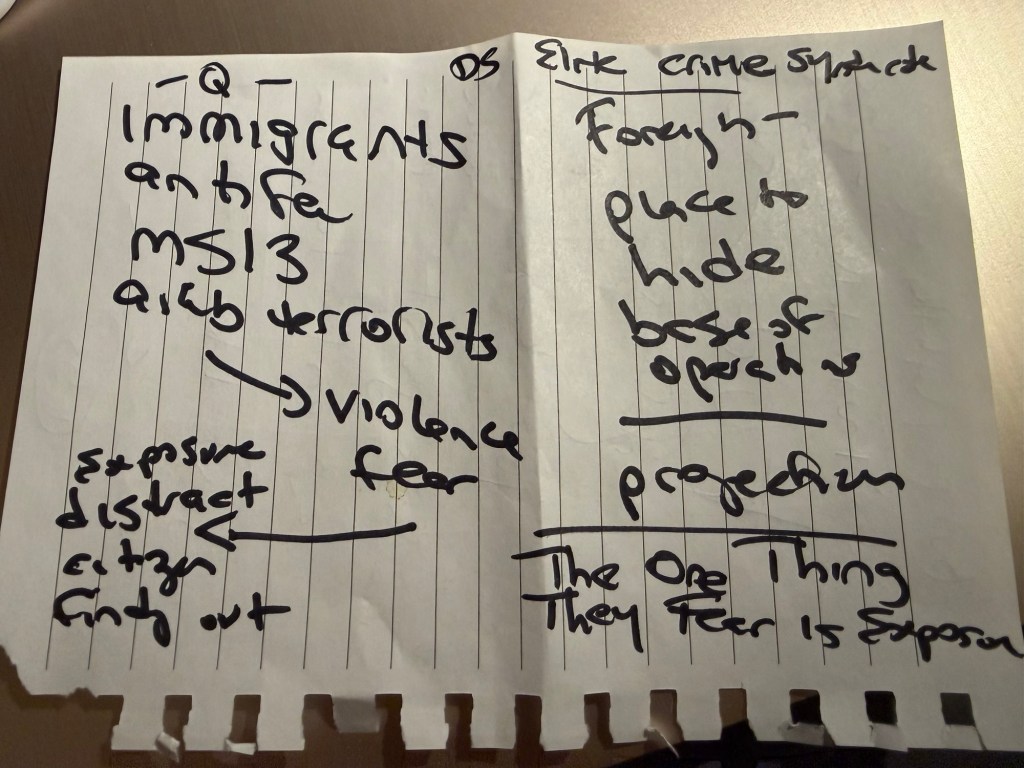 - Q -
Immigrants
antifa
MS13
arab terrorists
violence
fear
exposure
distract
citizen
find out
DS
Elite crime Syndicate
Foreign -
place to
hide
base of
operations
projection
The One Thing
They Fear is Exposur